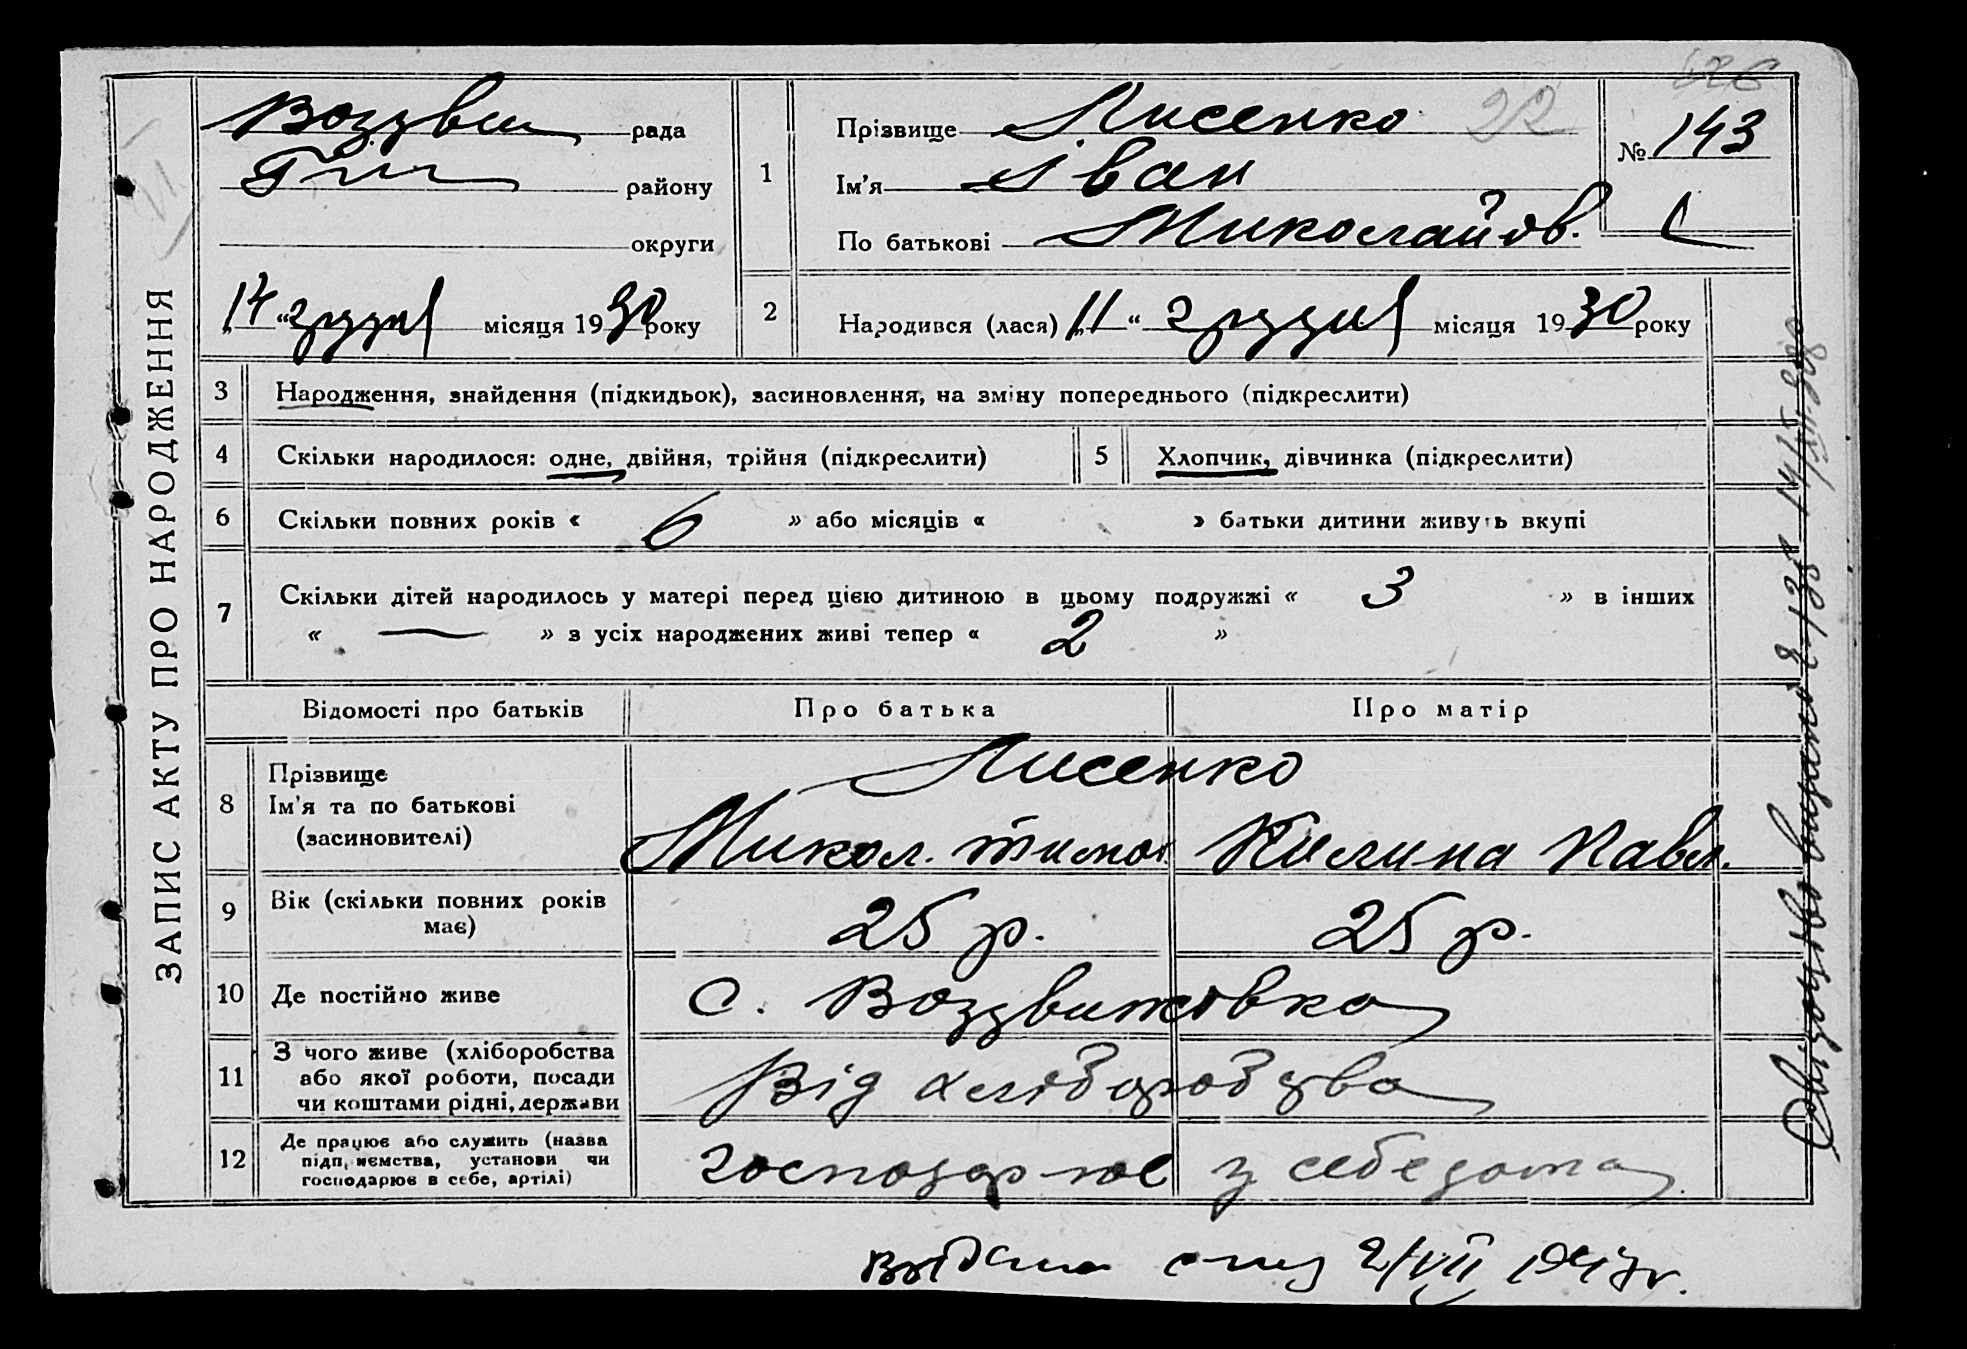 ЗАПИС АКТУ ПРО НАРОДЖЕННЯ
Воздвиж рада
району
округи
„14“ грудня місяця 1930 року
1
Прізвище Лисенко 22
Ім'я Іван
По батькові Миколайов.
№ 143
2
Народився (лася) „11“ грудня місяця 1930 року
3 Народження, знайдення (підкидьок), засиновлення, на зміну попереднього (підкреслити)
4 Скільки народилося: одне, двійня, трійня (підкреслити)
5 Хлопчик, дівчинка (підкреслити)
6 Скільки повних років « 6 » або місяців « » батьки дитини живуть вкупі
7 Скільки дітей народилось у матері перед цією дитиною в цьому подружжі « 3 » в інших
« — » з усіх народжених живі тепер « 2 »
Відомості про батьків Про батька Про матір
8 Прізвище
Ім'я та по батькові
(засиновителі)
Лисенко
Микол. Тимоф Килина Павл.
9 Вік (скільки повних років
має)
25 р. 25 р.
10 Де постійно живе с. Воздвижівка
11 З чого живе (хліборобства
або якої роботи, посади
чи коштами рідні, держави
Від хліборобства
12 Де працює або служить (назва
підприємства, установи чи
господарює в себе, артілі)
господарює з себе дома
2/VII 1947 г.